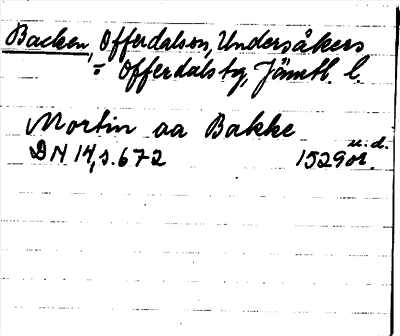 Backen, Offerdalson, Undersåkers
= Offerdals tg, Jämtl. l.
Mortin aa Bakke
u. d.
DN 14, s. 672 1529 or.